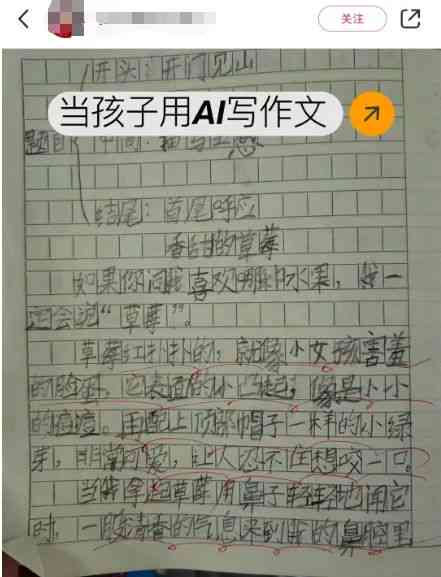 关注
开头：开门见山
当孩子用AI写作文
题目 中间：描写
结尾：首尾呼应
香甜的草莓
如果你问我喜欢哪种水果，我一
定会说“草莓”。
草莓红扑扑的，就像小女孩害羞
的脸蛋，它表面的小凸起，像是小小
的痘痘。再配上顶部帽子一样的小绿
芽，非常可爱，让人忍不住想咬一口。
当我拿起草莓用鼻子轻轻地闻它
时，一股清香的气息来到我的鼻腔里